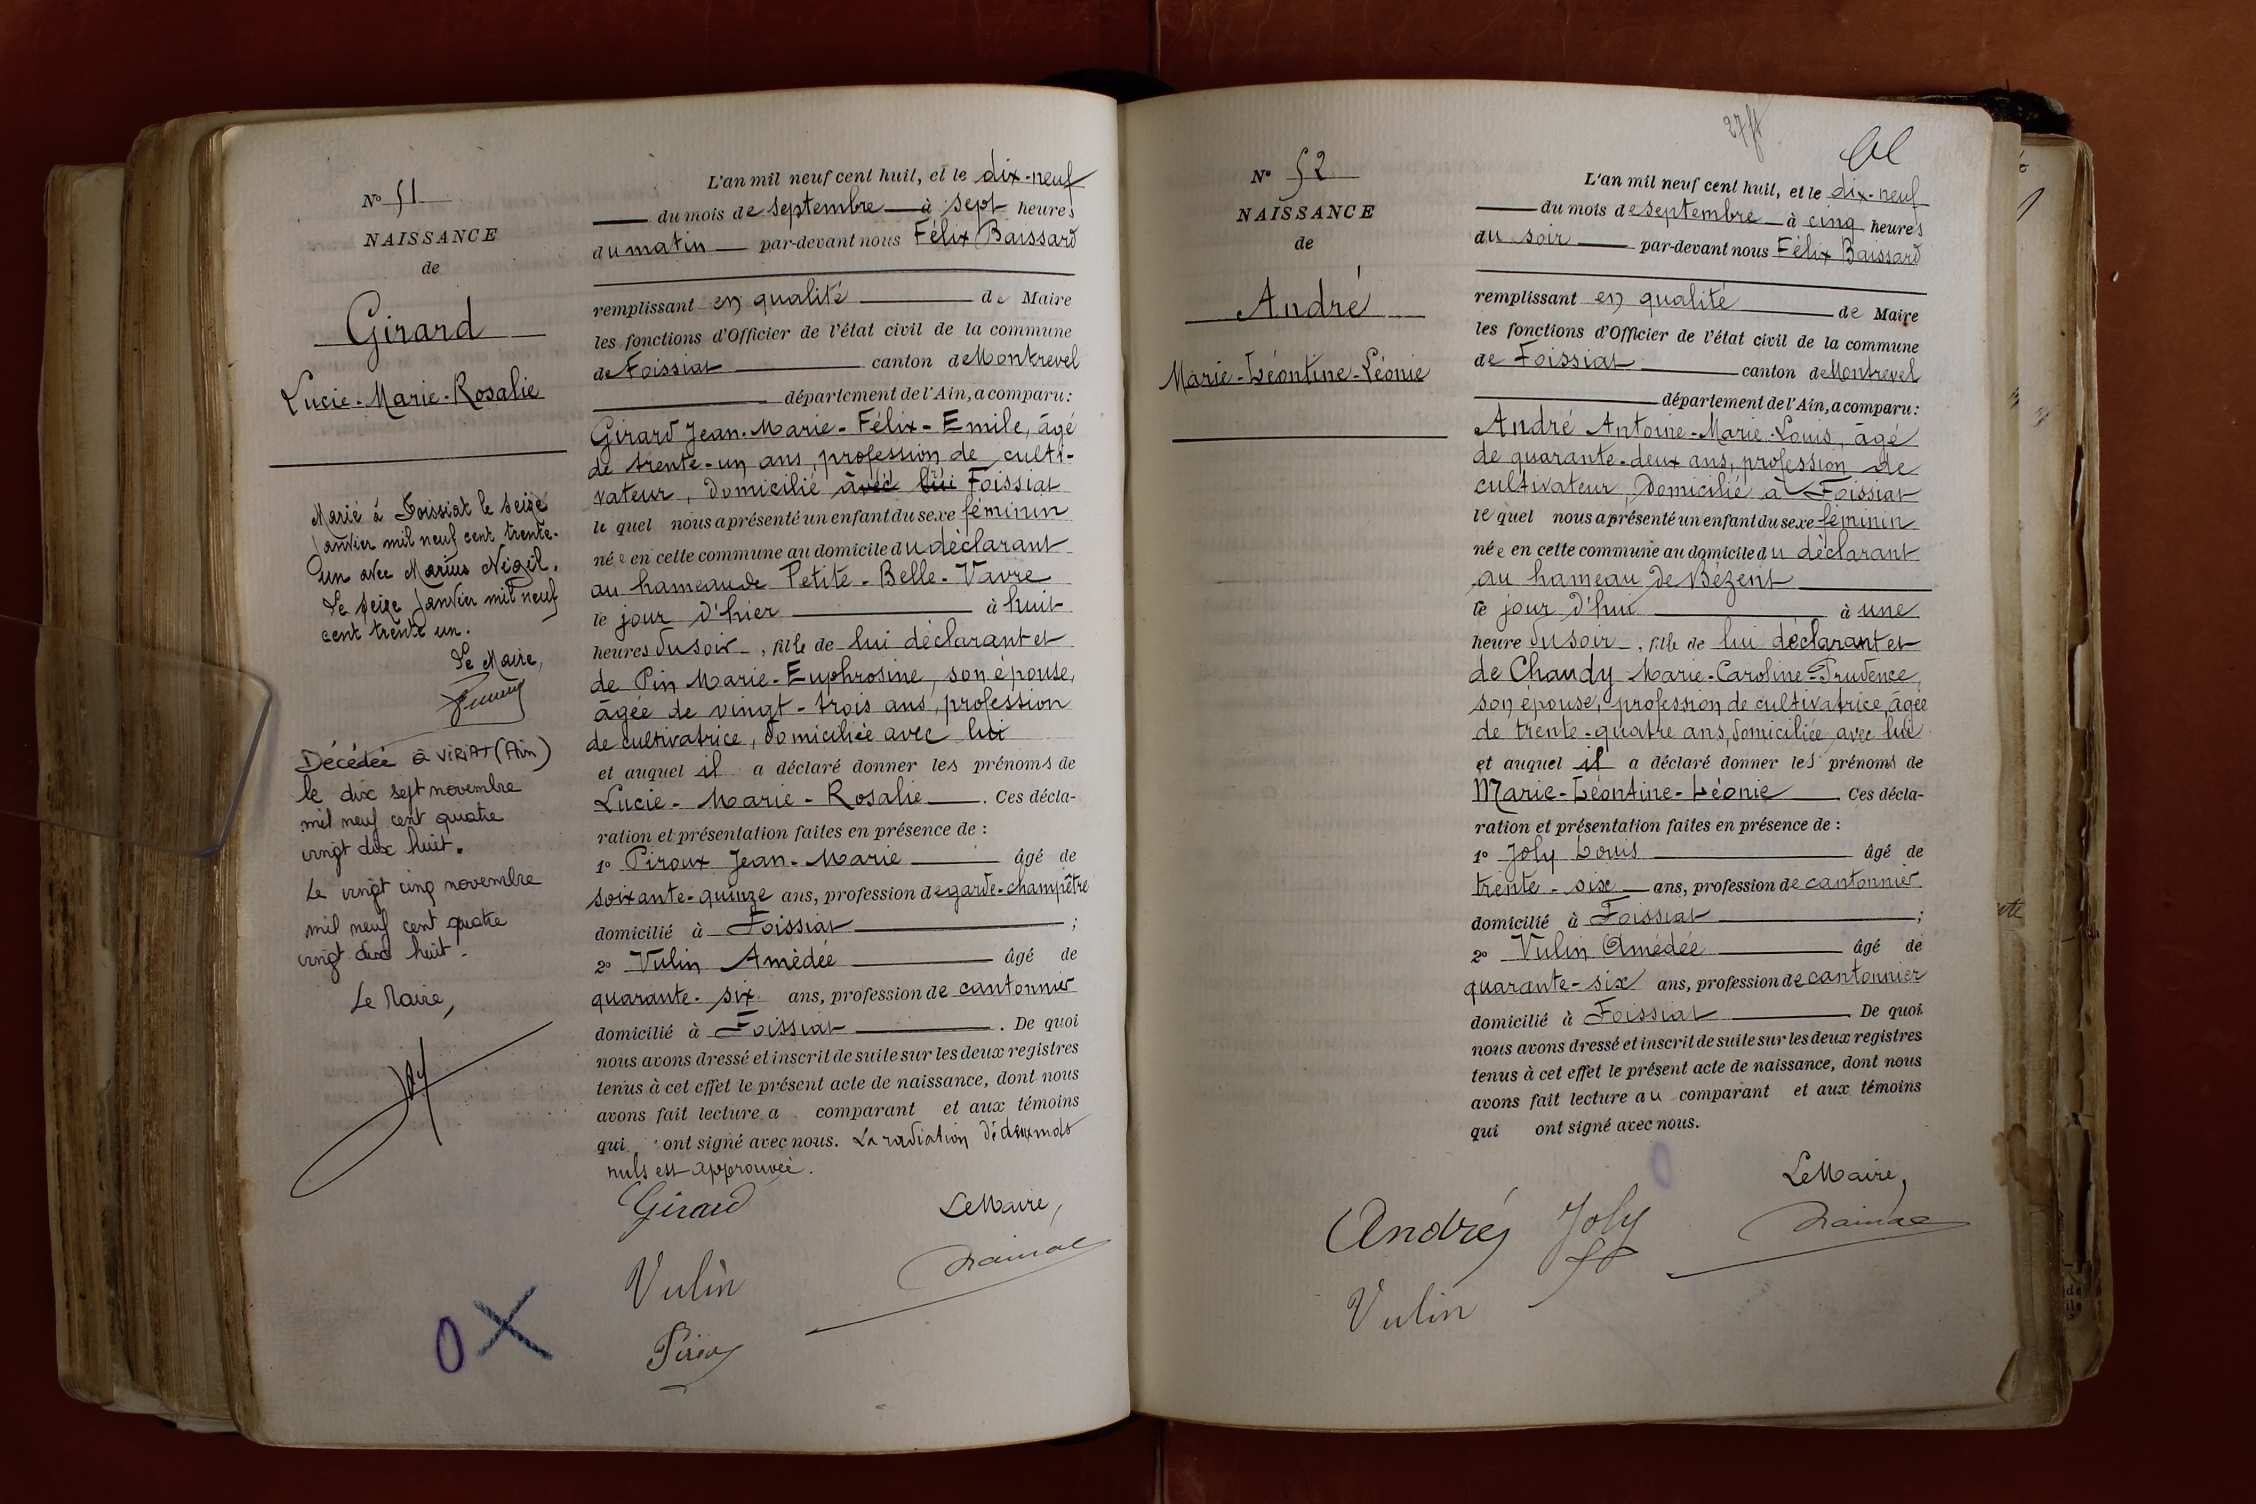 N° 51
NAISSANCE
de
Girard
Lucie-Marie-Rosalie
Marié à Foissiat le seize
Janvier mil neuf cent trente-
un avec Marius Nigil.
Le seize Janvier mil neuf
cent trente un.
Le Maire,
Décédée à VIRIAT (Ain)
le dix sept novembre
mil neuf cent quatre
vingt dix huit.
Le vingt cinq novembre
mil neuf cent quatre
vingt dix huit.
Le Maire,
L'an mil neuf cent huit, et le dix-neuf
du mois de septembre à sept heures
du matin par-devant nous Félix Baissard
remplissant en qualité de Maire
les fonctions d'Officier de l'état civil de la commune
de Foissiat canton de Montrevel
département de l'Ain, a comparu:
Girard Jean-Marie-Félix-Emile, âgé
de trente-un ans, profession de culti-
vateur, domicilié avec lui Foissiat
le quel nous a présenté un enfant du sexe féminin
née en cette commune au domicile du déclarant
au hameau de Petite-Belle-Vavre
le jour d'hier à huit
heures du soir, fille de lui déclarant et
de Pin Marie-Euphrosine, son épouse,
âgée de vingt-trois ans, profession
de cultivatrice, domiciliée avec lui
et auquel il a déclaré donner les prénoms de
Lucie-Marie-Rosalie. Ces décla-
ration et présentation faites en présence de:
1° Piroux Jean-Marie âgé de
soixante-quinze ans, profession de garde-champêtre
domicilié à Foissiat;
2° Vulin Amédée âgé de
quarante-six ans, profession de cantonnier
domicilié à Foissiat. De quoi
nous avons dressé et inscrit de suite sur les deux registres
tenus à cet effet le présent acte de naissance, dont nous
avons fait lecture a comparant et aux témoins
qui ont signé avec nous. La radiation de deux mots
nuls est approuvée.
Girard Le Maire,
Vulin
O X
N° 52
NAISSANCE
de
André
Marie-Léontine-Léonie
L'an mil neuf cent huit, et le dix-neuf
du mois de septembre à cinq heures
du soir par-devant nous Félix Baissard
remplissant en qualité de Maire
les fonctions d'Officier de l'état civil de la commune
de Foissiat canton de Montrevel
département de l'Ain, a comparu:
André Antoine-Marie-Louis, âgé
de quarante-deux ans, profession de
cultivateur, domicilié à Foissiat
le quel nous a présenté un enfant du sexe féminin
née en cette commune au domicile du déclarant
au hameau de Bézent
le jour d'hui à une
heure du soir, fille de lui déclarant et
de Chaudy Marie-Caroline-Prudence,
son épouse, profession de cultivatrice, âgée
de trente-quatre ans, domiciliée avec lui
et auquel il a déclaré donner les prénoms de
Marie-Léontine-Léonie. Ces décla-
ration et présentation faites en présence de:
1° Joly Louis âgé de
trente-six ans, profession de cantonnier
domicilié à Foissiat;
2° Vulin Amédée âgé de
quarante-six ans, profession de cantonnier
domicilié à Foissiat De quoi
nous avons dressé et inscrit de suite sur les deux registres
tenus à cet effet le présent acte de naissance, dont nous
avons fait lecture au comparant et aux témoins
qui ont signé avec nous.
Le Maire,
André Joly
Vulin